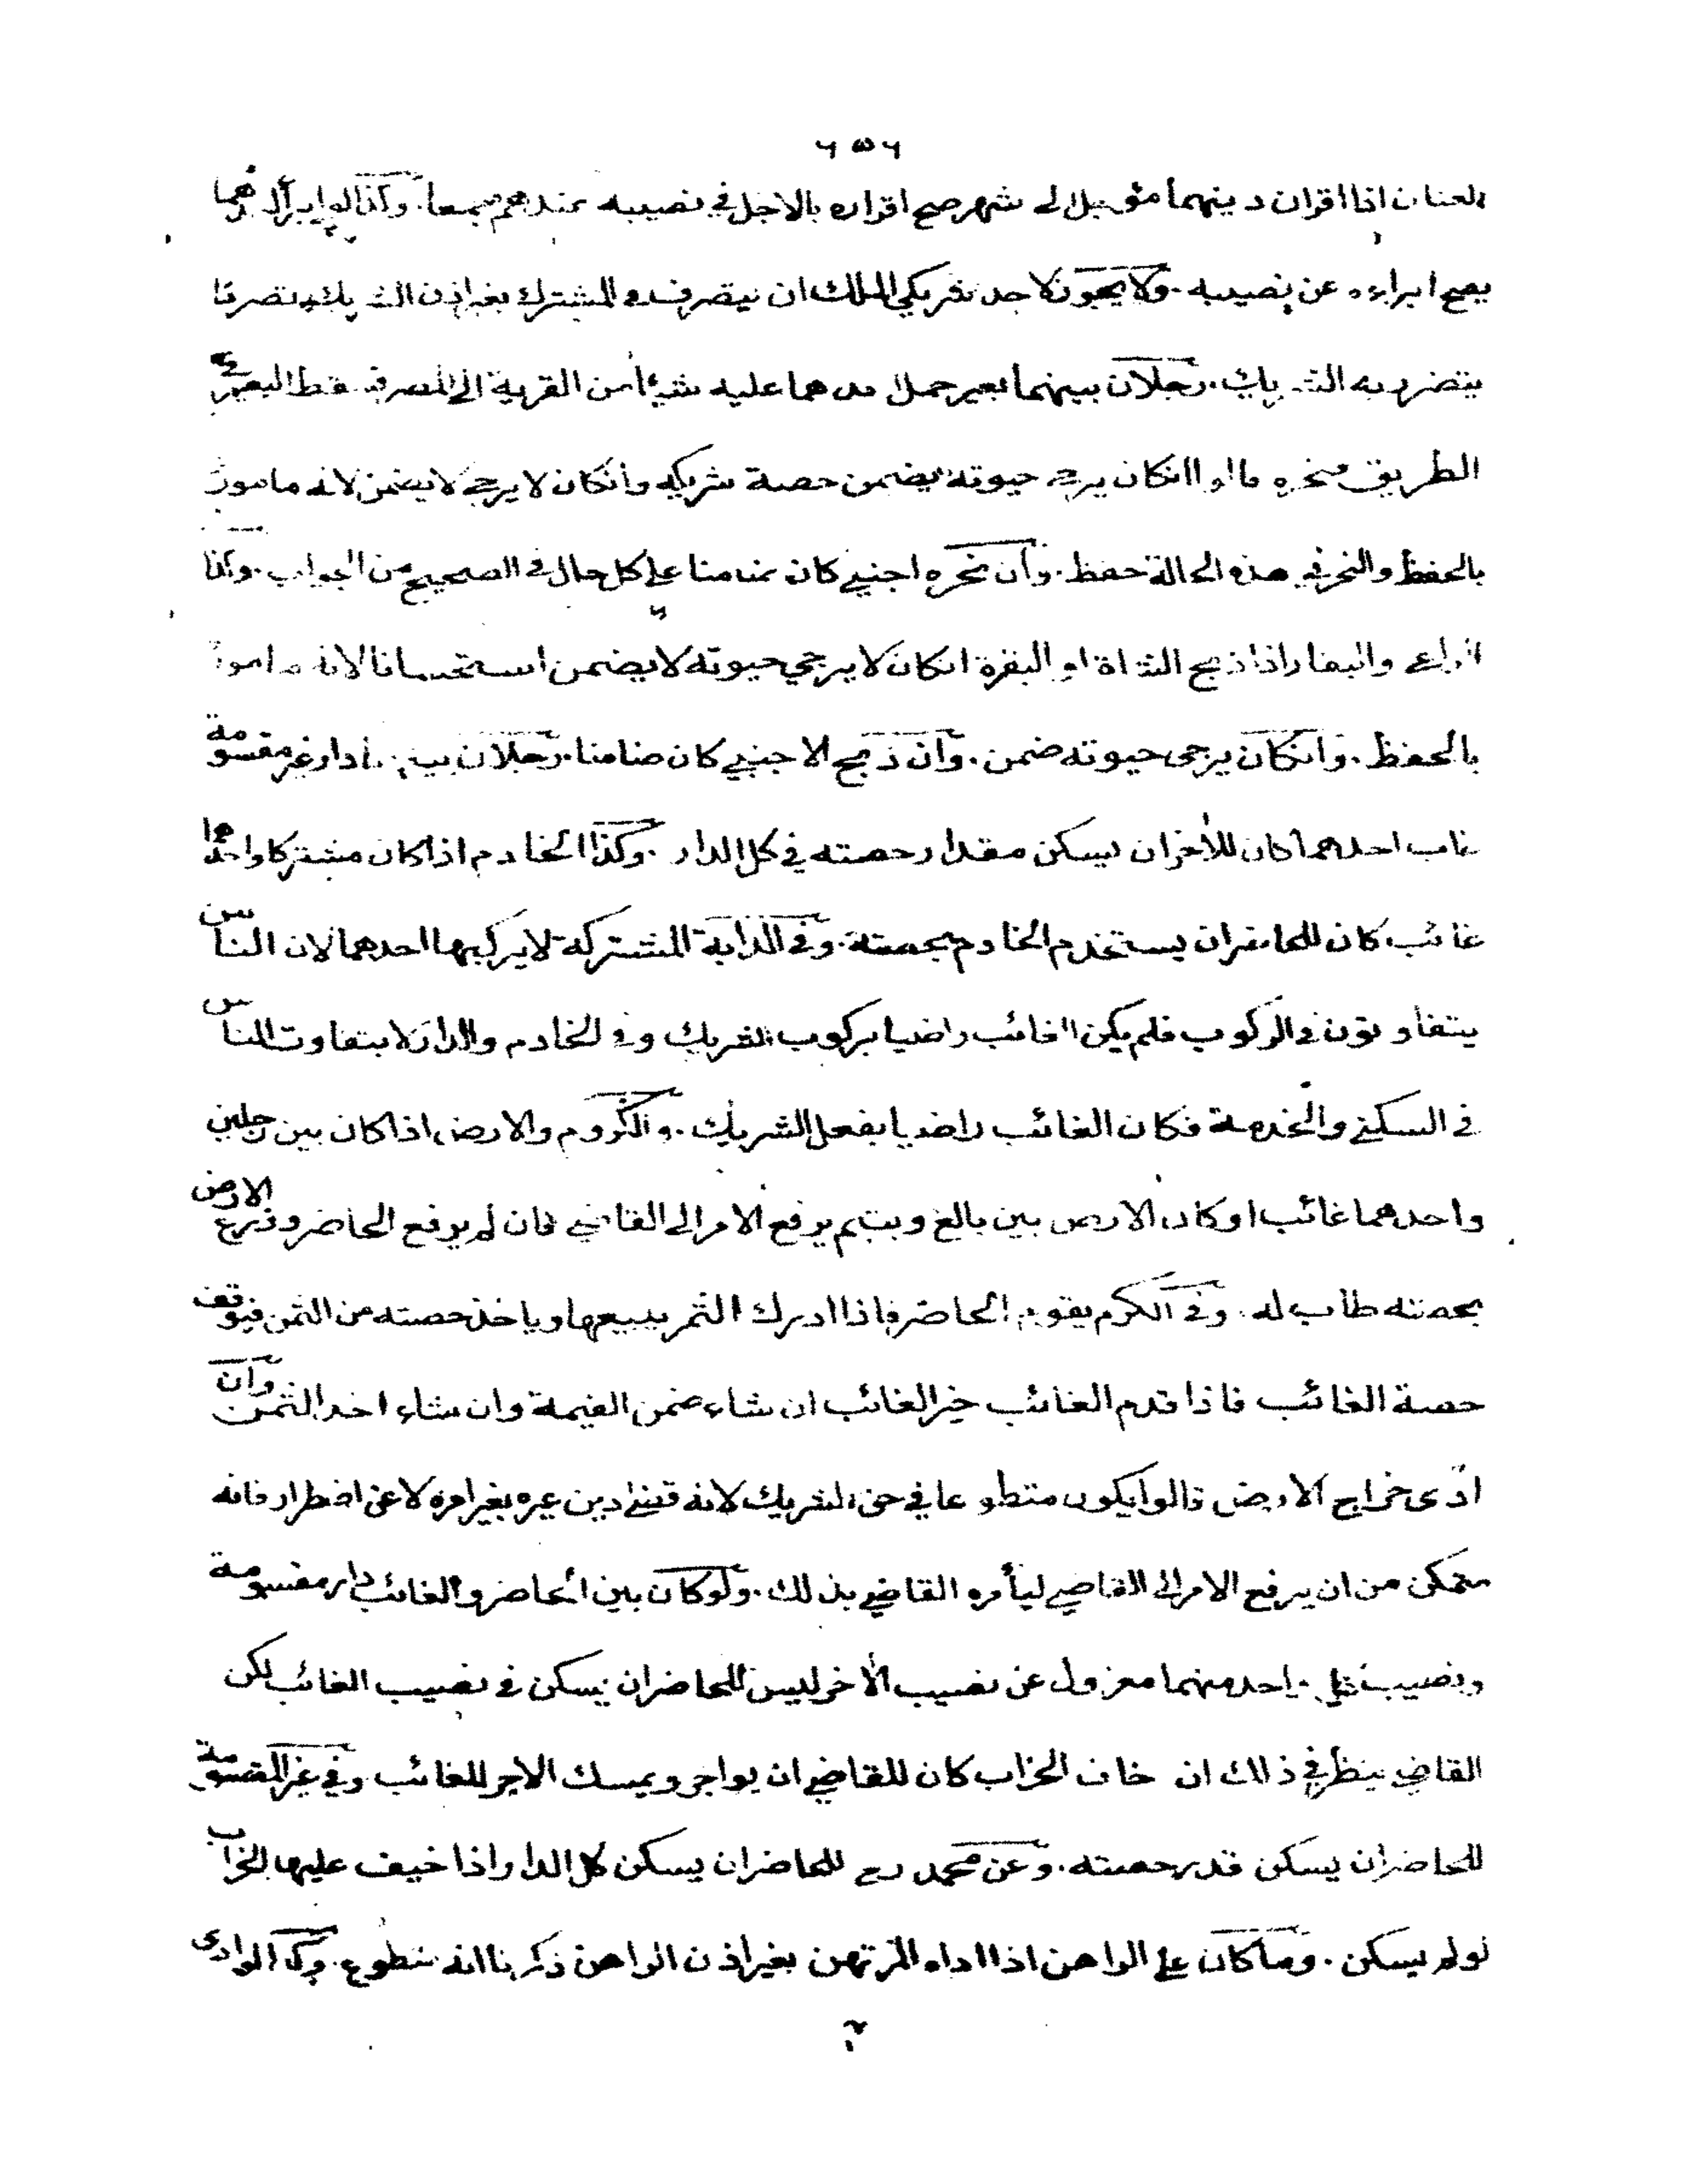 ٦٥٦
العنان اذا اقران دينهما مؤجل الى شهر صح اقراره بالاجل في نصيبه عندهم جميعا. وكذا لو ابرأ احدهما
يصح ابراءه عن نصيبه. ولا يجوز لاحد شريكي الملك ان يتصرف في المشترك بغير اذن الشريك تصرفا
يتضرر به الشريك. رجلان بينهما بعير حمل احدهما عليه شيئا من القرية الى المصر فسقط البعير في
الطريق فنحره قالوا انكان يرجى حيوته يضمن حصة شريكه وانكان لا يرجى لا يضمن لانه مامور
بالحفظ والنحر في هذه الحالة حفظ. وان نحره اجنبي كان ضامنا على كل حال في الصحيح من الجواب. وكذا
الراعي والبقار اذا ذبح الشاة او البقرة انكان لا يرجي حيوته لا يضمن استحسانا لانه مامور
بالحفظ. وانكان يرجى حيوته ضمن. وان ذبح الاجنبي كان ضامنا. رجلان بينهما دار غير مقسومة
غاب احدهما كان للأخر ان يسكن مقدار حصته في كل الدار. وكذا الخادم اذا كان مشتركا واحدهما
غائب كان للحاضر ان يستخدم الخادم بحصته. وفي الدابة المشتركة لا يركبها احدهما لان الناس
يتفاوتون في الركوب فلم يكن الغائب راضيا بركوب الشريك وفي الخادم والدار لا يتفاوت الناس
في السكنى والخدمة فكان الغائب راضيا بفعل الشريك. والكروم والارض اذا كان بين رجلين
واحدهما غائب او كان الارض بين بالغ ويتيم يرفع الامر الى القاضي فان لم يرفع الحاضر وزرع الارض
بحصته طاب له. وفي الكرم يقوم الحاضر فاذا ادرك الثمر يبيعها وياخذ حصته من الثمن فيوقف
حصة الغائب فاذا قدم الغائب خير الغائب ان شاء ضمن القيمة وان شاء اخذ الثمن. وان
ادّى خراج الارض قالوا يكون متطوعا في حق الشريك لانه قضى دين غيره بغير امره لا عن اضطرار فانه
متمكن من ان يرفع الامر الى القاضي ليأمره القاضي بذلك. ولو كان بين الحاضر والغائب دار مقسومة
ونصيب كل واحد منهما معزول عن نصيب الأخر ليس للحاضر ان يسكن في نصيب الغائب لكن
القاضي ينظر في ذلك ان خاف الخراب كان للقاضي ان يواجر ويمسك الاجر للغائب وفي غير المقسومة
للحاضر ان يسكن قدر حصته. وعن محمد رح للحاضر ان يسكن كل الدار اذا خيف عليها الخراب
لو لم يسكن. وما كان على الراهن اذا اداه المرتهن بغير اذن الراهن ذكرنا انه متطوع. وكذا لو ادى